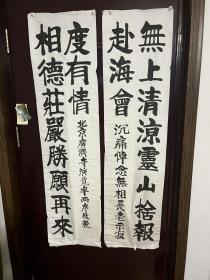 無上清涼靈山捨報
赴海會
沉痛悼念無相長老示寂
相德莊嚴勝願再來
度有情
北京廣濟寺演覺率兩序敬輓